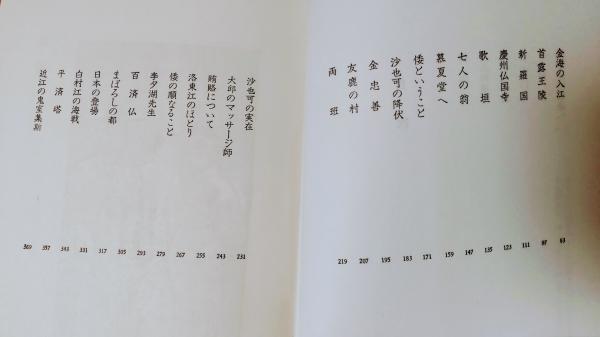 金海の入江 83
首露王陵 97
新羅国 111
慶州仏国寺 123
歌垣 135
七人の翁 147
慕夏堂へ 159
倭ということ 171
沙也可の降伏 183
金忠善 195
友鹿の村 207
両班 219
沙也可の実在 231
大邱のマッサージ師 243
賄賂について 255
洛東江のほとり 267
倭の順なること 279
李夕湖先生 293
百済仏 305
まぼろしの都 317
日本の登場 331
白村江の海戦 343
平済塔 357
近江の鬼室集斯 369